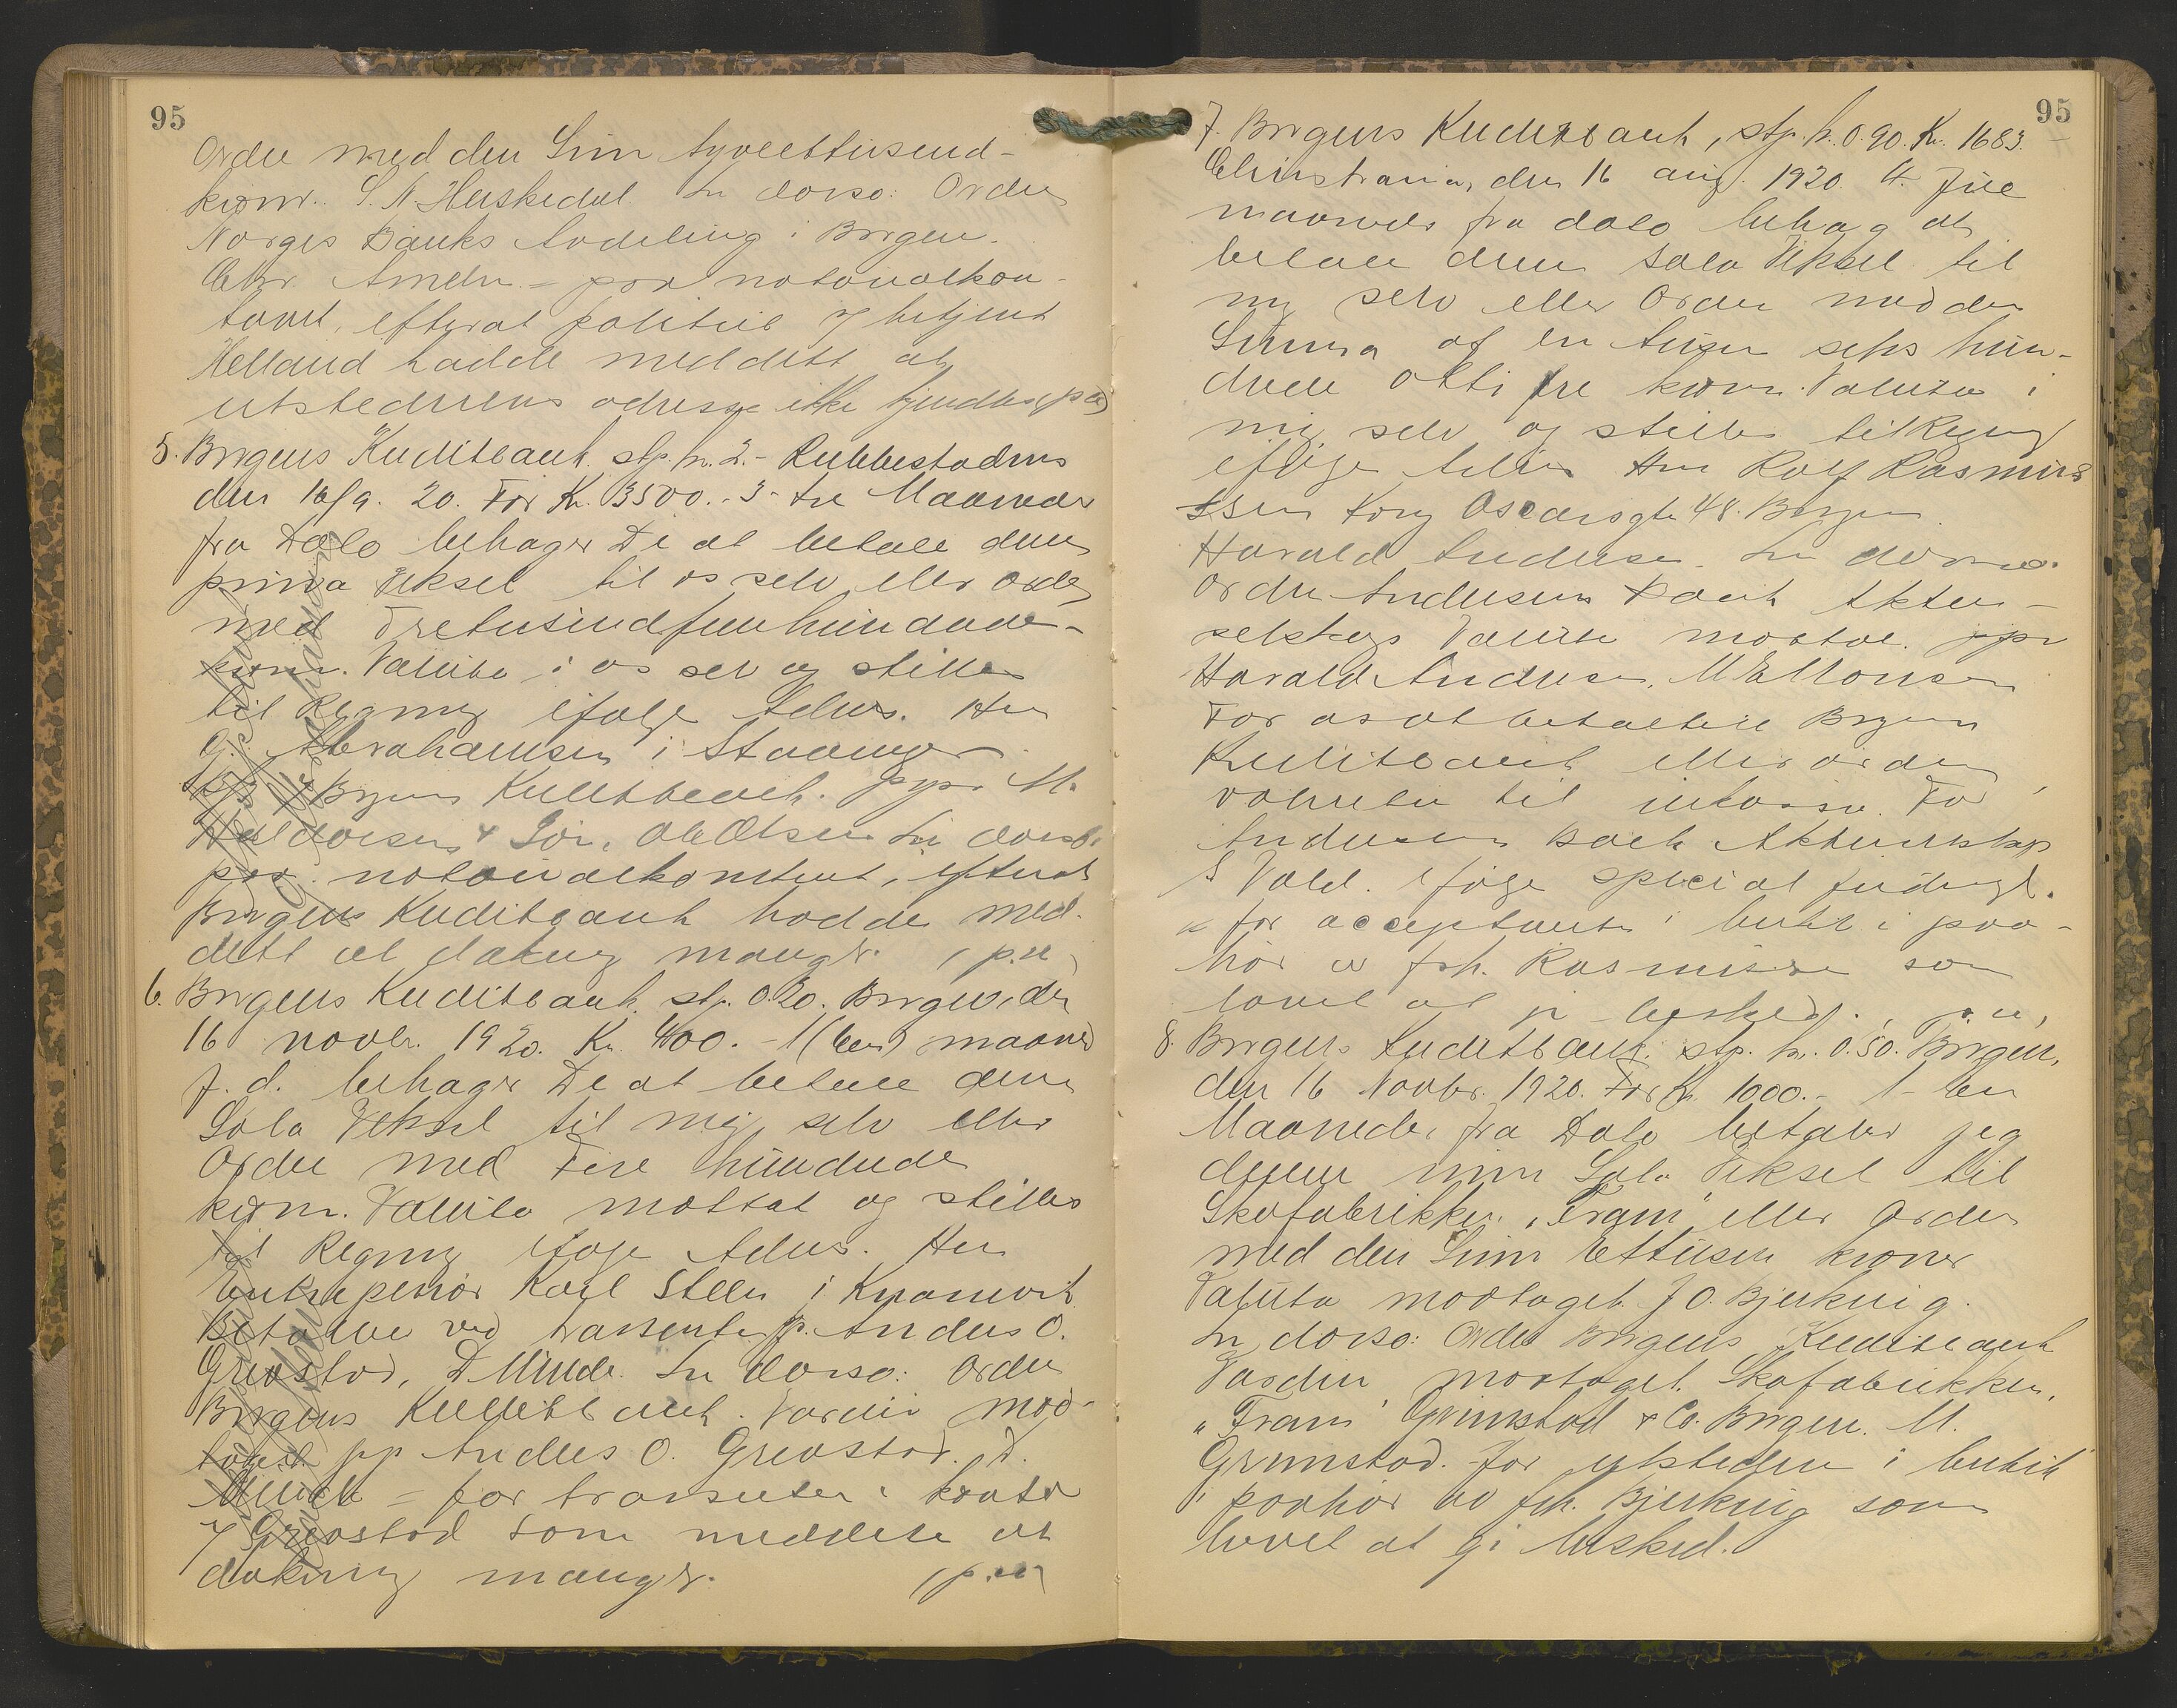 95
Ordre med den Sum tyveettusend-
kroner. S. N. Herskedal. In dorso: Ordre
Norges Banks Avdeling i Bergen.
Chr. Ameln = paa notarialkon-
toret, efterat politiet v/ betjent
Helland hadde meddelt at
utstederens adresse ikke kjendtes (p.n.)
5. Bergens Kreditbank. stp. kr. 2.- Rubbestadnes
den 16/9. 20. For Kr. 3500.- 3- tre Maaneder
fra Dato behager De at betale denne
prima Veksel til os selv eller ordre
med Tretusindfemhundrede-
kroner. Valuta i os selv og stilles
til Regning ifølge Advis. Herr
G. Abrahamsen i Stavanger
Bergens Kreditbank. pp. M.
Haldorsen & Søn, Ol. Olsen In dorso:
paa notarialkontoret, efterat
Bergens Kreditbank hadde med-
delt at dækning mangler. (p.n.)
6. Bergens Kreditbank. stp. 0.20. Bergen, den
16 novbr. 1920. Kr. 400.- 1 (en) maaned
f. d. behager De at betale denne
Sola Veksel til mig selv eller
Ordre med Fire hundrede
kroner. Valuta mottat og stilles
til Regning ifølge Advis. Herr
Entreprenør Karl Steen i Knarevik
Betalbar ved trassenten p. Anders O.
Grevstad, D Minde. In dorso: Ordre
Bergens Kreditbank. Værdi mod-
taget pp Anders O. Grevstad. D.
Minde = for trassenten i kontor
v/ Grevstad som meddelte at
dækning mangler. (p.n.)
95
7. Bergens Kreditbank, stp. kr. 0.90. Kr. 1683.-
Christiania, den 16 aug. 1920. 4. Fire
maaneder fra dato behag at
betale denne Sola Veksel til
mig selv eller Ordre med den
Summa af en tusen seks hun-
drede otti tre kroner. Valuta i
mig selv og stilles til Regning
ifølge Advis Herr Rolf Rasmus
ssen Kong Oscarsgt 48. Bergen.
Harald Andersen. In dorso:
Ordre Andresens Bank Aktie-
selskap Valuta mottat. ppr
Harald Andersen, M Monsen
For os at betale til Bergens
Kreditbank eller ordre
valuta til inkasso. For
Andresens Bank Aktieselskap
S Vold. ifølge special fuldmagt.
= for acceptanten i butik i paa-
hør av frk. Rasmussen som
lovet at gi besked. (p.n.)
8. Bergens Kreditbank. stp. kr. 0.50. Bergen,
den 16 Novbr. 1920. For Kr. 1000.- 1- En
Maaneder fra Dato betaler jeg
denne min Sola Veksel til
Skofabrikken „Fram" eller Ordre
med den Sum Ettusen kroner
Valuta modtaget. J O. Bjerknig.
In dorso: Ordre Bergens Kreditbank
Værdien modtaget. Skofabrikken,
„Fram" Grimstad & Co. Bergen. M.
Grimstad. for utstederen i butik
i paahør av frk. Bjerknig som
lovet at gi besked.